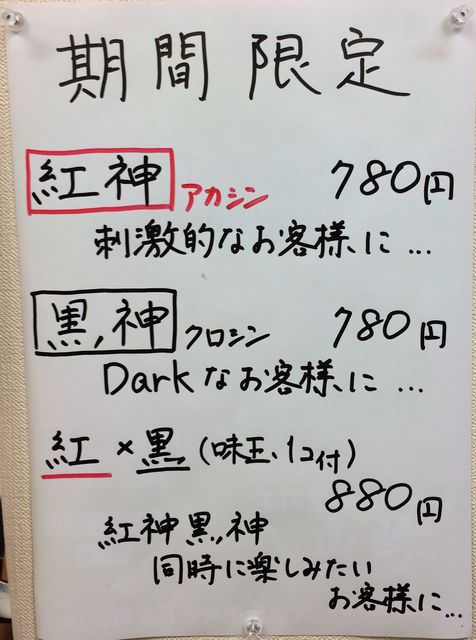 期間限定
紅神 アカシン 780円
刺激的なお客様に...
黒神 クロシン 780円
Darkなお客様に...
紅×黒(味玉1コ付)
880円
紅神黒神
同時に楽しみたい
お客様に...